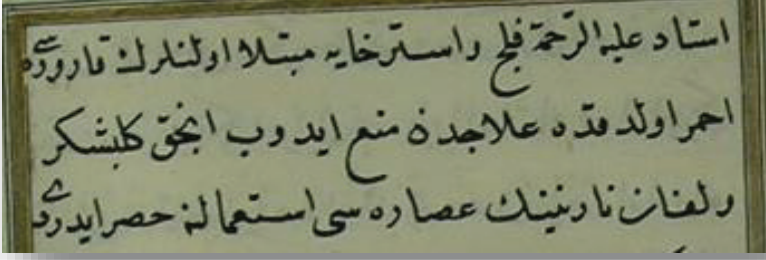 استاد عليه الرحمة فلج واسترخايه مبتلا اولنلرك قاروره سى
احمر اولدقده علاجدن منع ايدوب انجق كلبشكر
ولفنان نارنينك عصاره سى استعمالنه حصر ايدردى